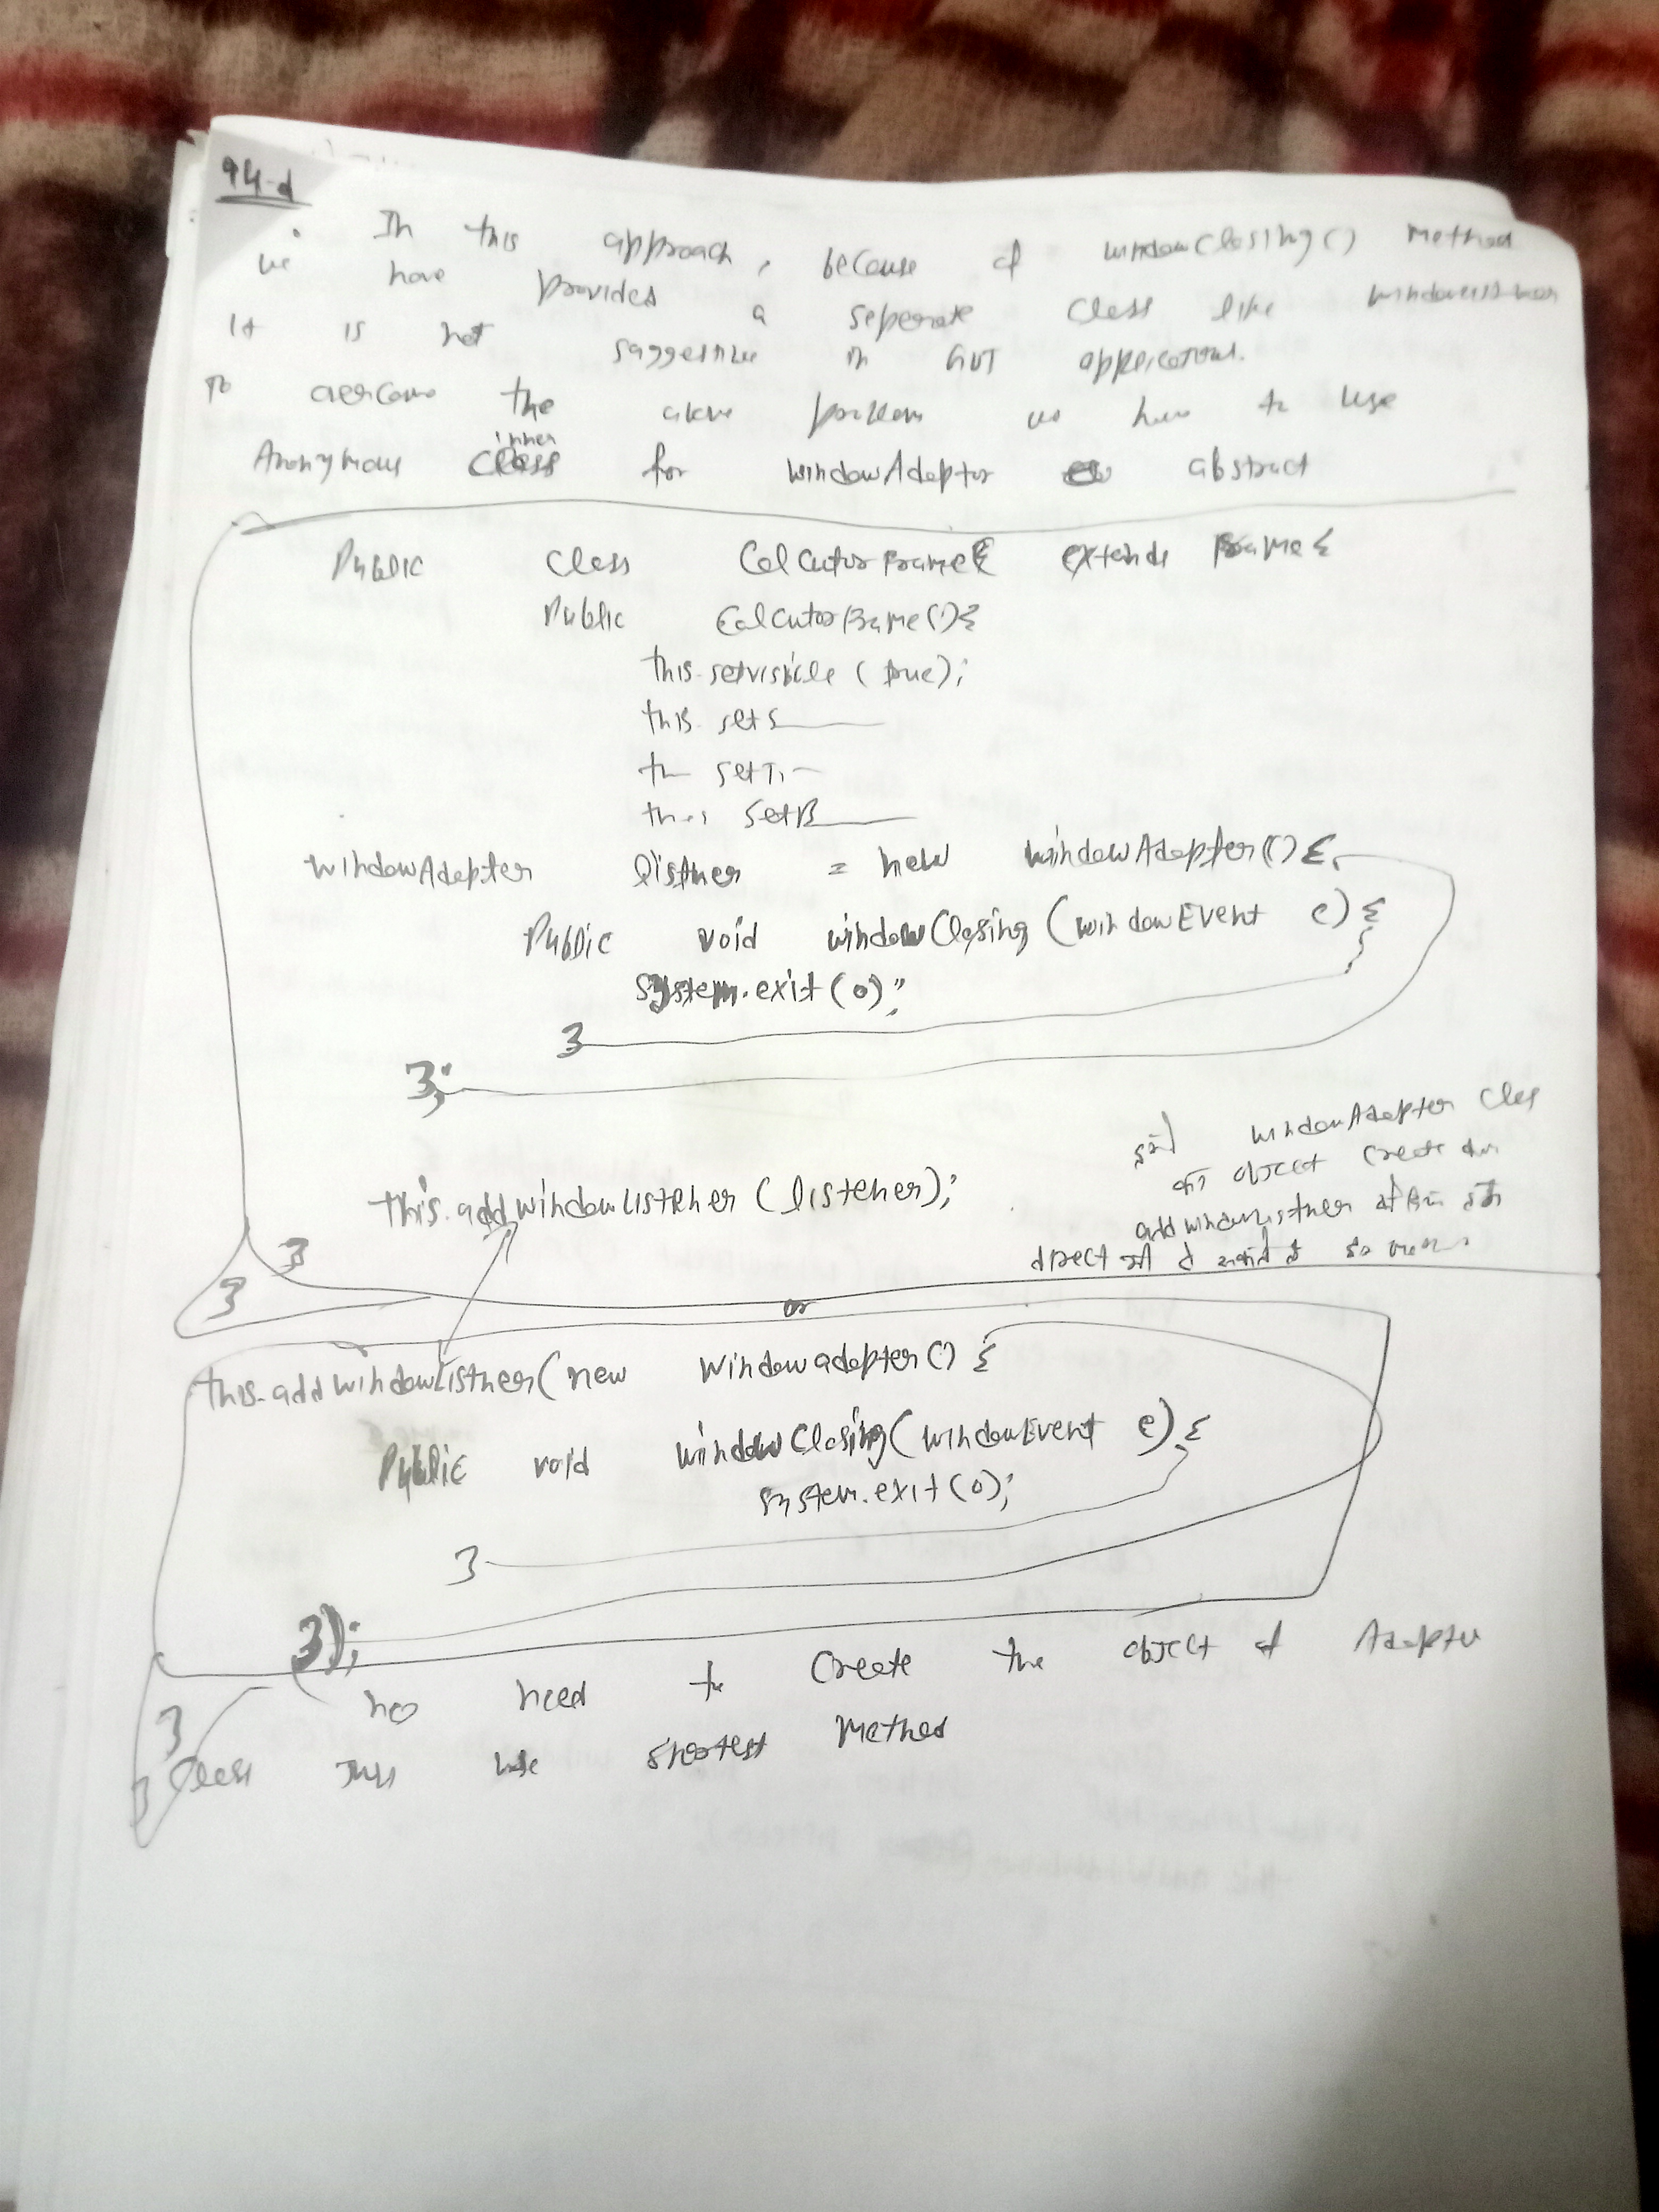 94-d
In this approach, because of windowClosing() Method
we have provides a seperate class like
It is not in GUI applications.
To overcome the above problem we have to use
inner
Anonymous class for windowAdaptor abstract
Public class CalCutorFrame{ extends Frame{
Public CalCutorFrame(){
this.setvisible (true);
this. sets
th setTi
this setB
windowAdepter listner = new windowAdepter(){
Public void windowClosing (windowEvent e) {
system.exit(0);
}
};
this.addwindowListener (listener);
windowAdepter Class
का object create
addwindowListner
direct
}
}
or
this.addwindowListner(new Windowadepter() {
Public void windowClosing(windowEvent e) {
system.exit(0);
}
});
no need to Create the object of Adepter
}
class This use shortest Method
}